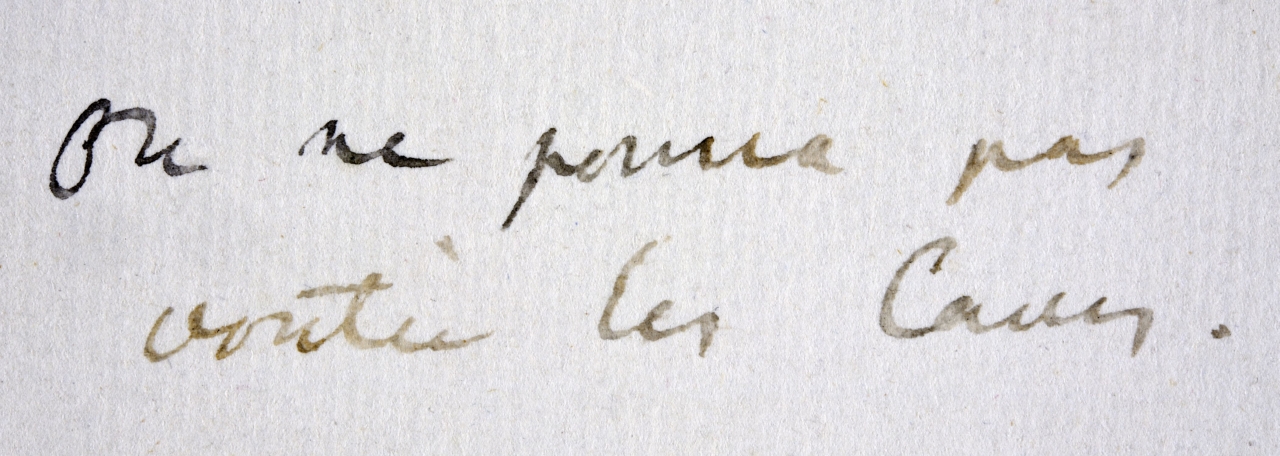 On ne pourra pas
voûter les Caves.